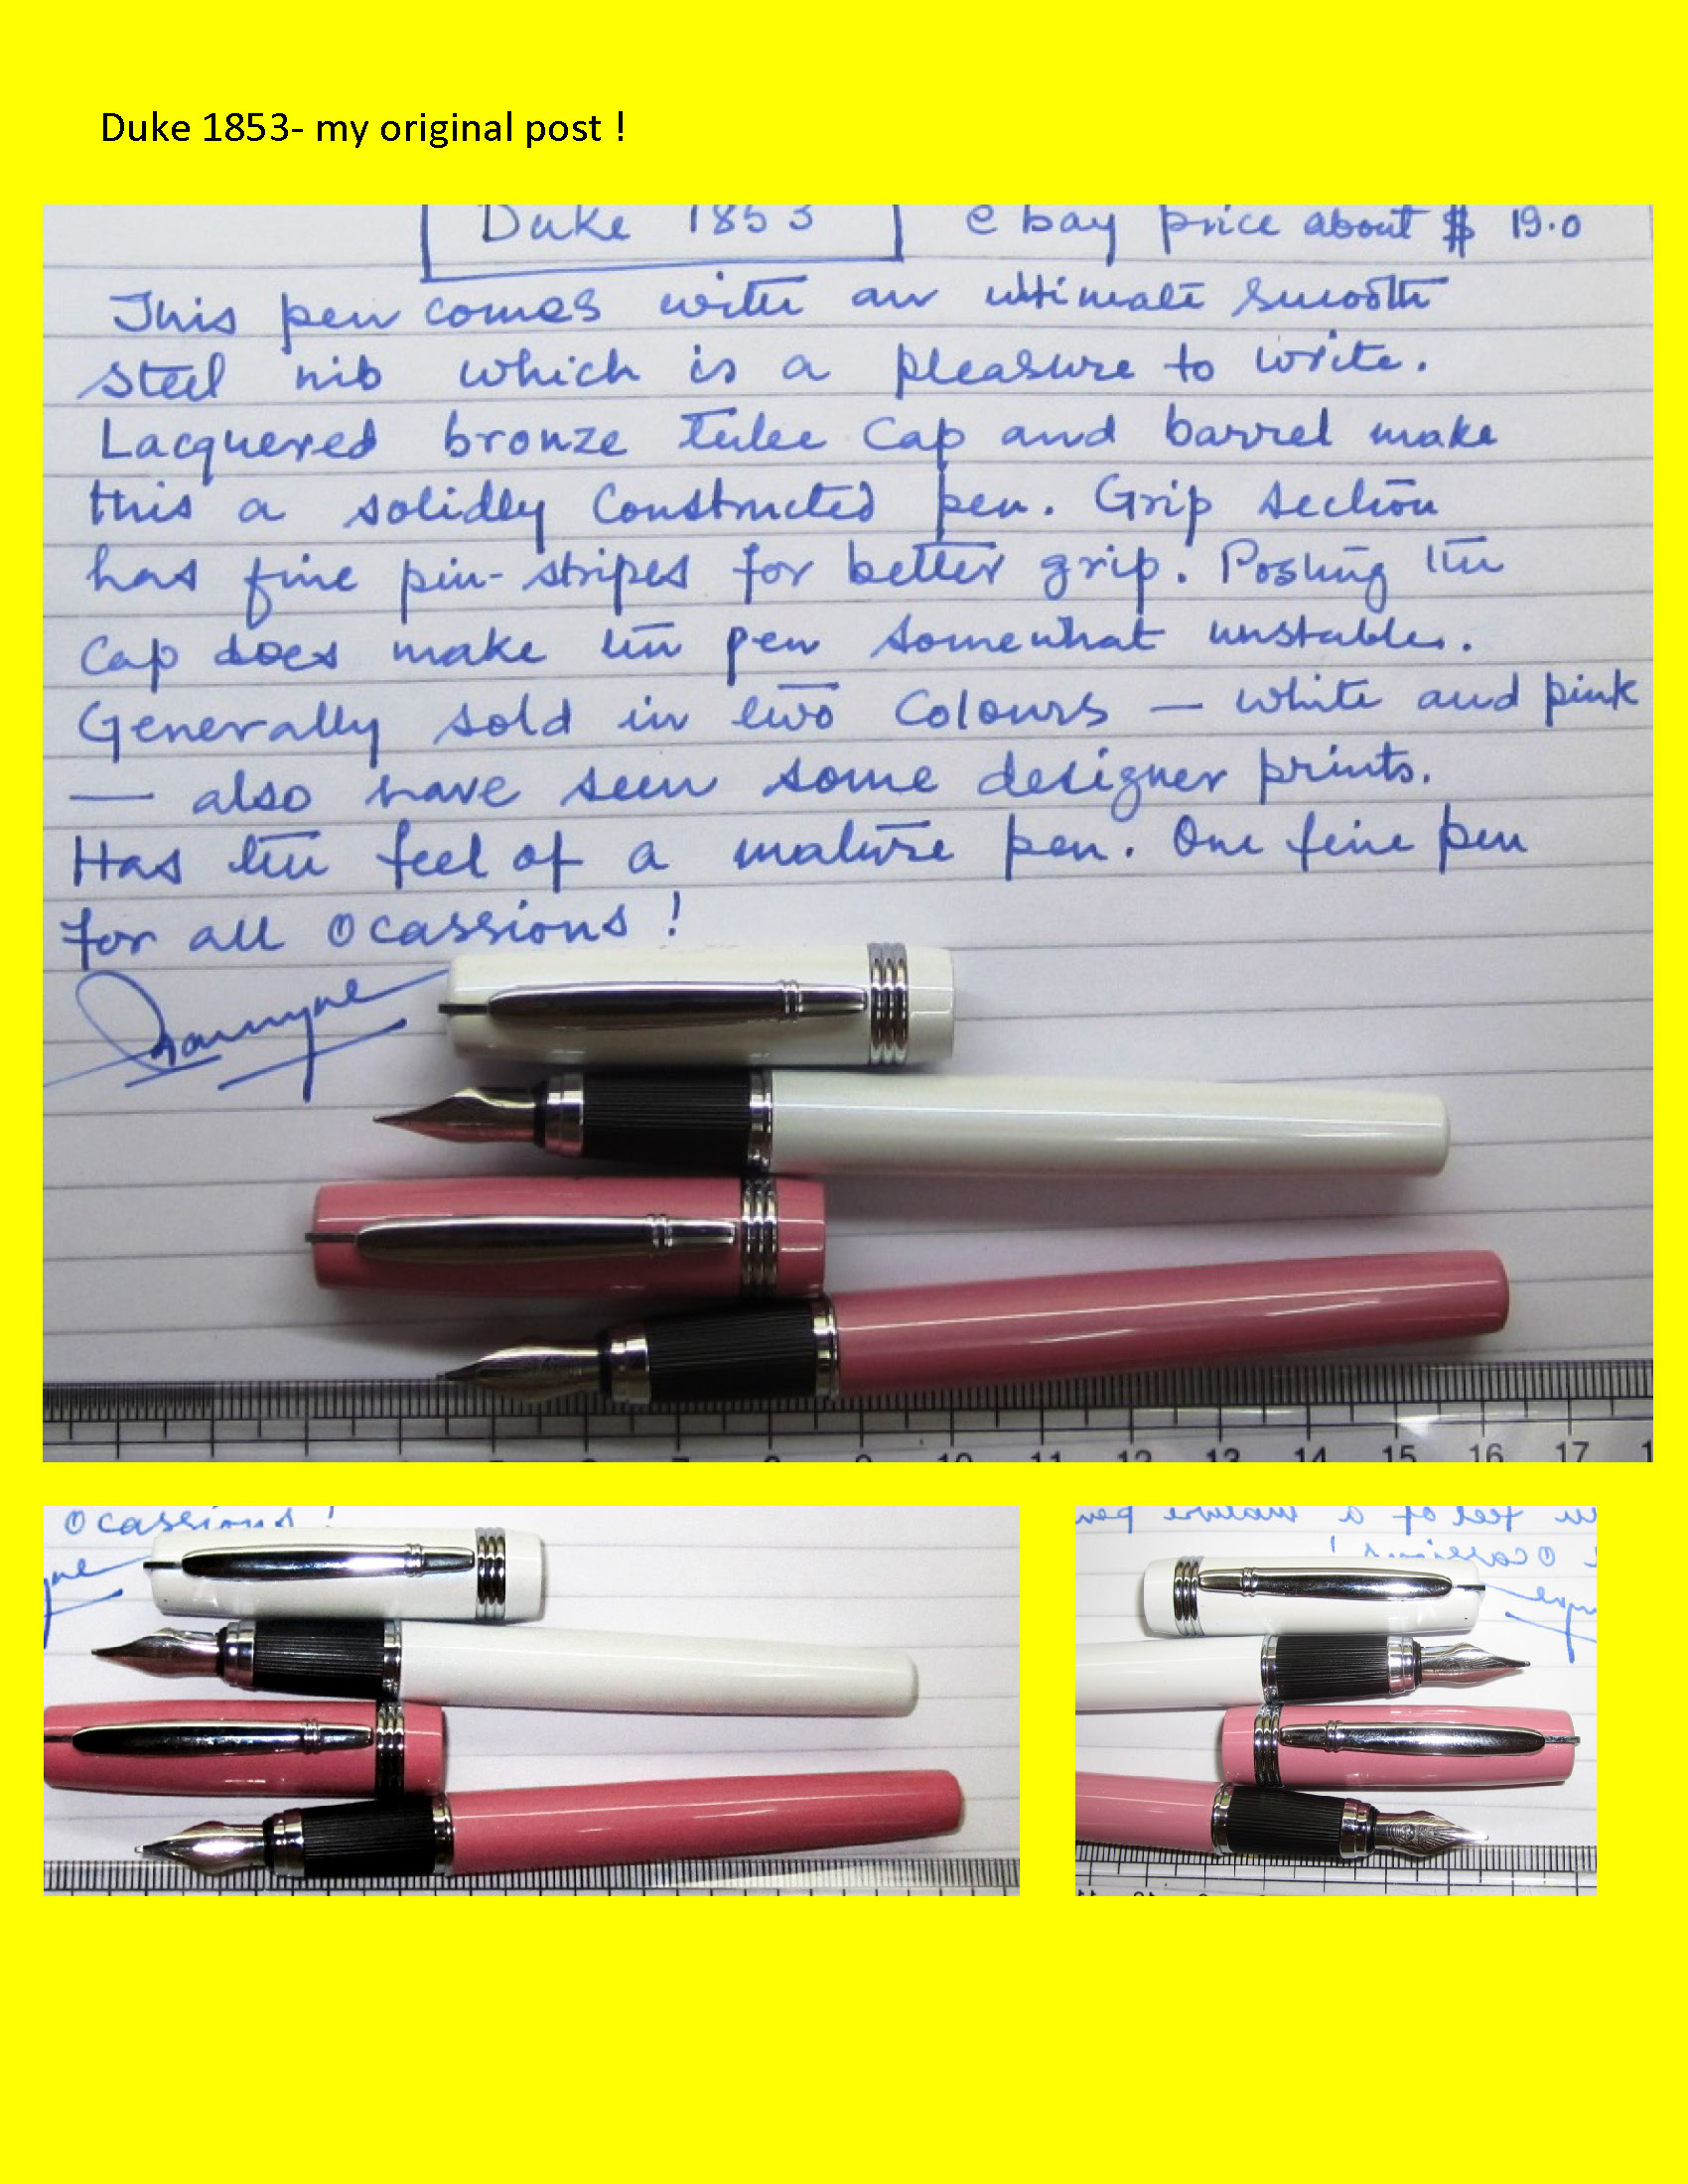 Duke 1853- my original post !
Duke 1853 ebay price about $ 19.0
This pen comes with an ultimate smooth
steel nib which is a pleasure to write.
Lacquered bronze tube Cap and barrel make
this a solidly Constructed pen. Grip section
has fine pin-stripes for better grip. Posting the
Cap does make the pen somewhat unstable.
Generally sold in two Colours — white and pink
— also have seen some designer prints.
Has the feel of a mature pen. One fine pen
for all Ocassions!
8 9 10 11 12 13 14 15 16 17
Ocassions!
feel of a mature pen
Ocassions!